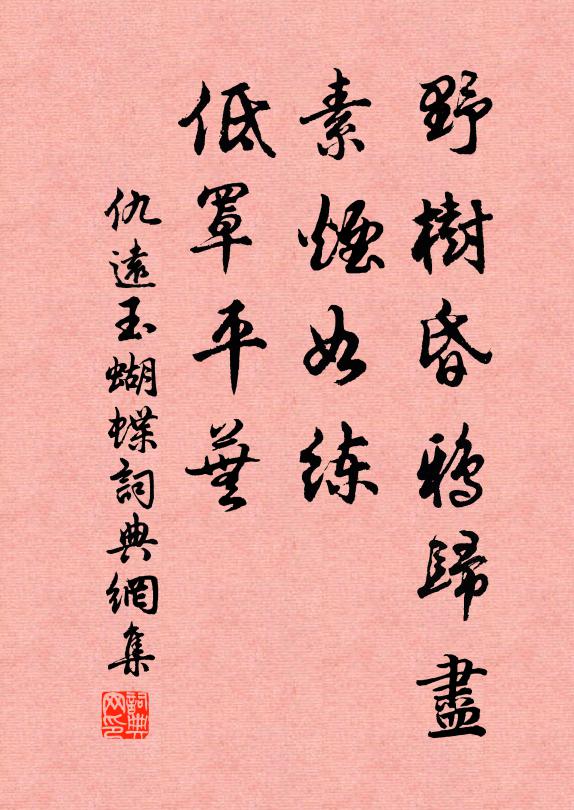 野樹昏鴉歸盡
素煙如練
低罩平蕪
仇遠玉蝴蝶詞典網集
詞典网印